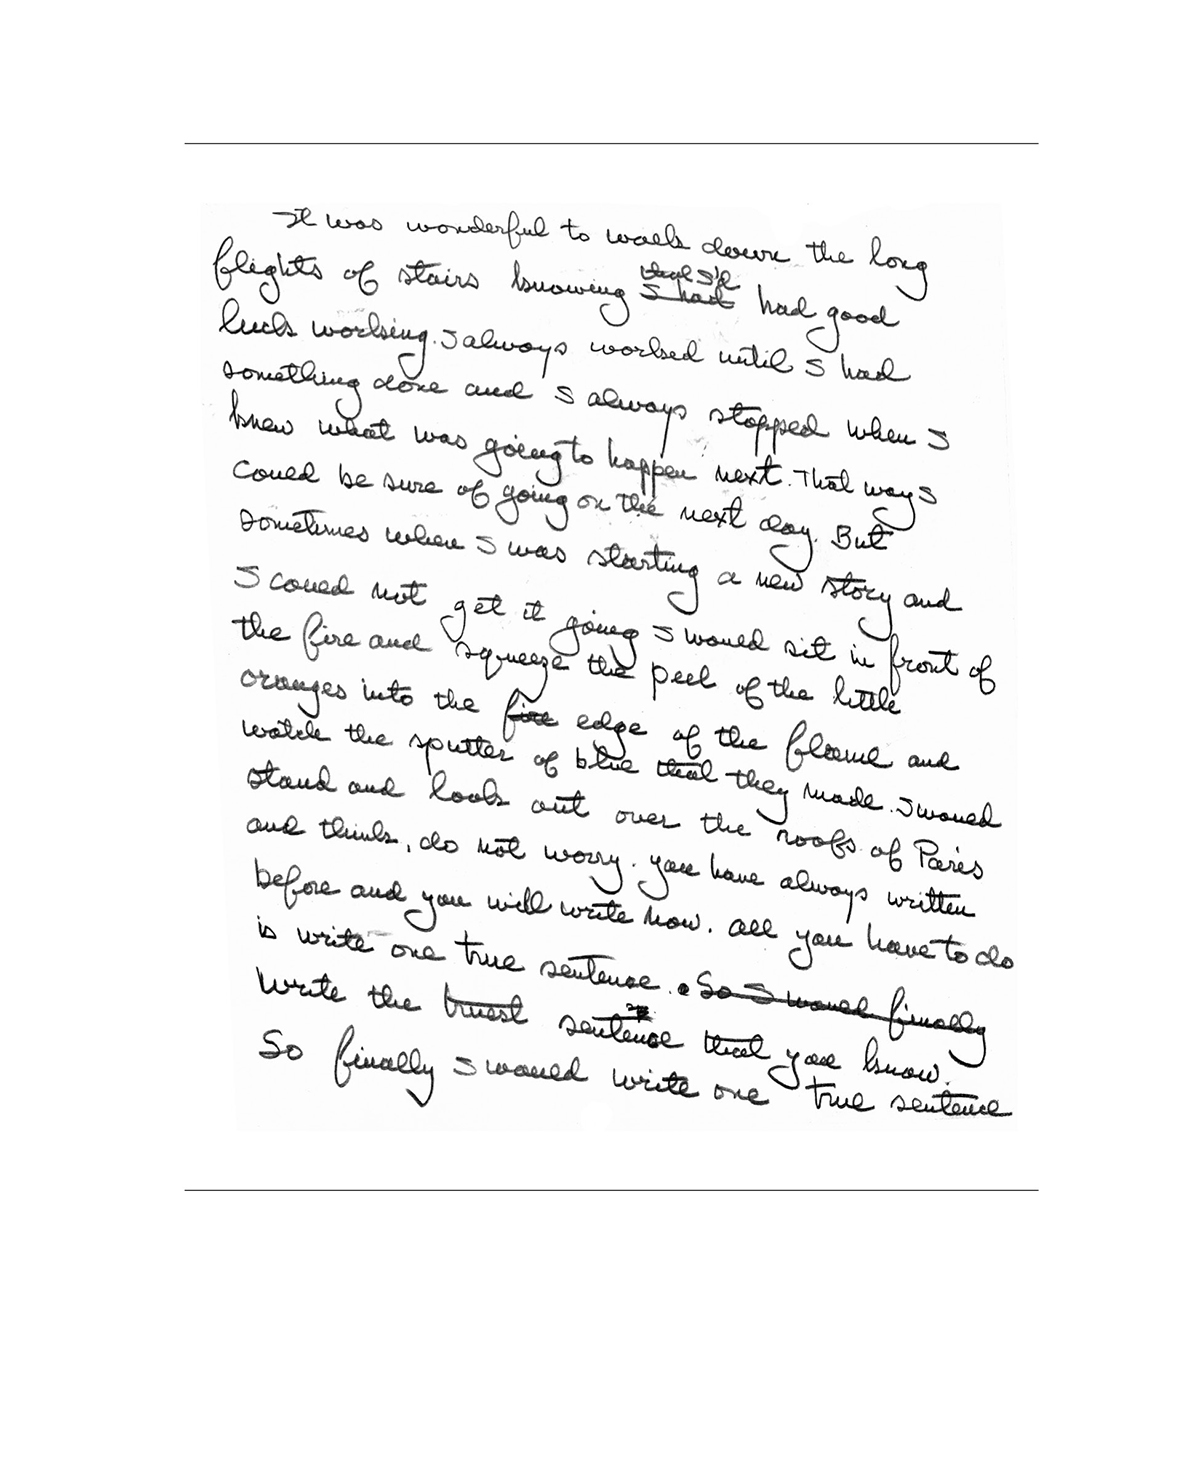 It was wonderful to walk down the long
flights of stairs knowing that I'd had good
luck working. I always worked until I had
something done and I always stopped when I
knew what was going to happen next. That way I
could be sure of going on the next day. But
sometimes when I was starting a new story and
I could not get it going I would sit in front of
the fire and squeeze the peel of the little
oranges into the fire edge of the flame and
watch the sputter of blue that they made. I would
stand and look out over the roofs of Paris
and think, do not worry. you have always written
before and you will write now. all you have to do
is write one true sentence. So I would finally
write the truest sentence that you know.
So finally I would write one true sentence